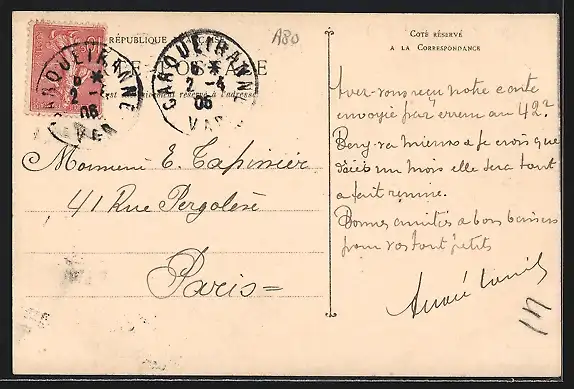 RÉPUBLIQUE FRANÇAISE
A80
CARTE POSTALE
CARQUEIRANNE
6 *
2 - 4
06
VAR
CARQUEIRANNE
6 *
2 -
06
VAR
est exclusivement réservé à l'adresse
Monsieur E. Tapissier
41 Rue Pergolèse
Paris =
COTÉ RÉSERVÉ
A LA CORRESPONDANCE
Avez-vous reçu notre carte
envoyée par erreur au 42?
va mieux & je crois que
d'ici un mois elle sera tout
a fait remise.
Bonnes amitiés & bons baisers
pour vos tout petits
André